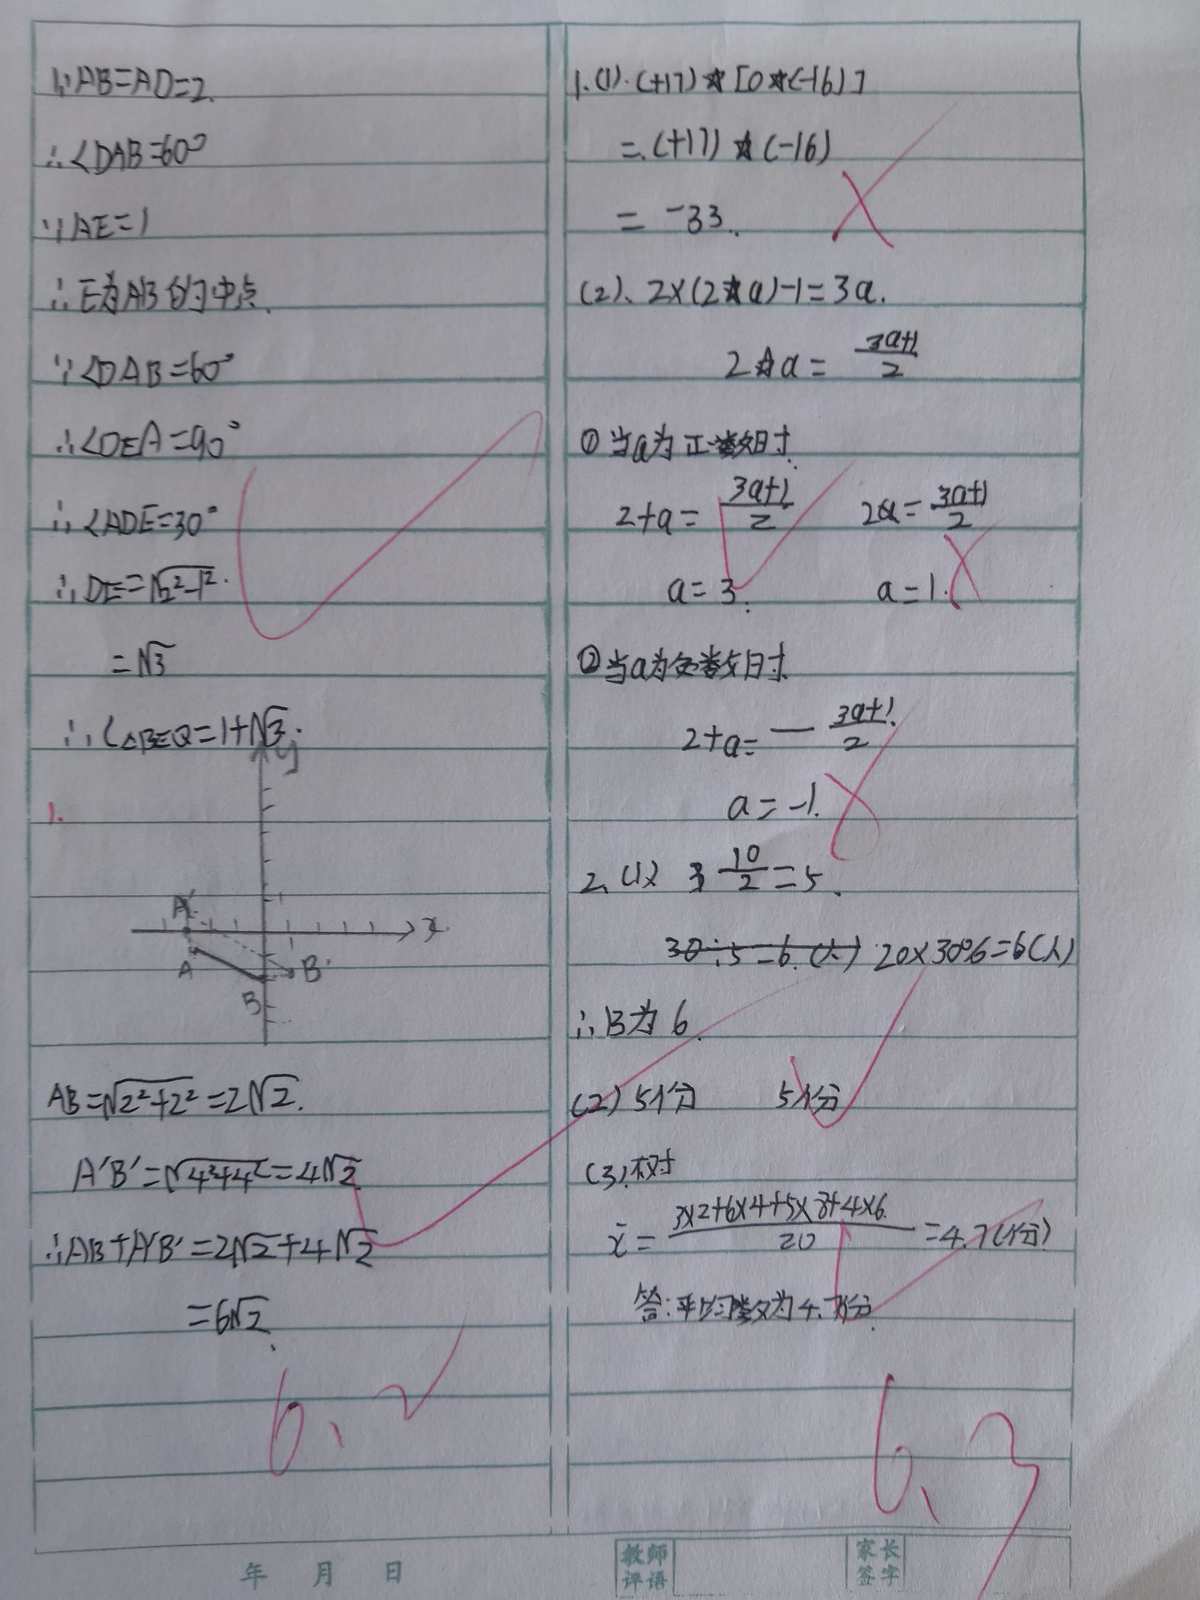 ∵AB=AD=2.
∴∠DAB=60°
∵AE=1
∴E为AB的中点.
∵∠DAB=60°
∴∠DEA=90°
∴∠ADE=30°
∴DE=√2²-1².
=√3
∴C△BEQ=1+√3.
1.
y
A′
x
A
B′
B
AB=√2²+2²=2√2.
A′B′=√4²+4²=4√2
∴AB+A′B′=2√2+4√2
=6√2.
6.2
1.(1).(+17)☆[0☆(-16)]
=(+17)☆(-16)
=-33.
(2)、2×(2☆a)-1=3a.
2☆a=3a+1/2
①当a为正数时.
2+a=3a+1/2 2a=3a+1/2
a=3. a=1.
②当a为负数时.
2+a=-3a+1/2
a=-1.
2、(1) 10/2=5.
30÷5=6.(人) 20×30%=6(人)
∴B为6.
(2)5个分 5个分
(3).对
x̄=3×2+6×4+5×8+4×6/20=4.7(个分)
答:平均数为4.7个分.
6.3
年 月 日
教师评语
家长签字